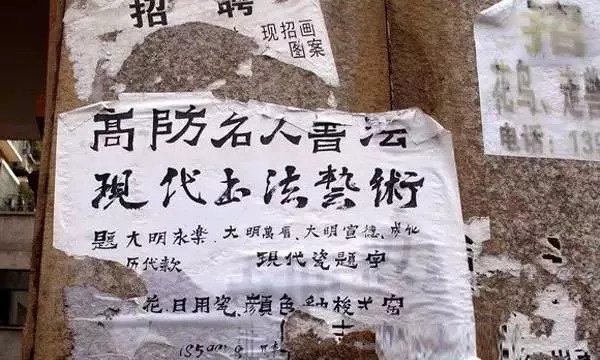 招聘
现招画
图案
高防名人書法
現代书法藝術
題大明永樂、大明萬曆、大明宣德、成化
历代款 現代瓷題字
花、日用瓷、顏色釉梭式窑
花鸟、
电话:139